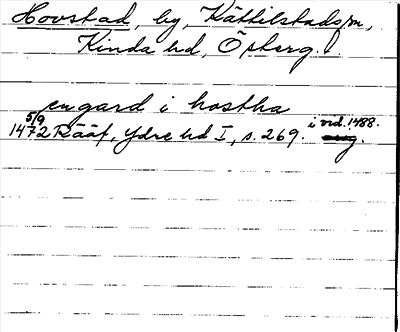 Hovstad, by, Kättilstads sn,
Kinda hd, Östergl.
en gard i hostha
5/9
1472 Rääf, Ydre hd I, s. 269. i vid. 1488.